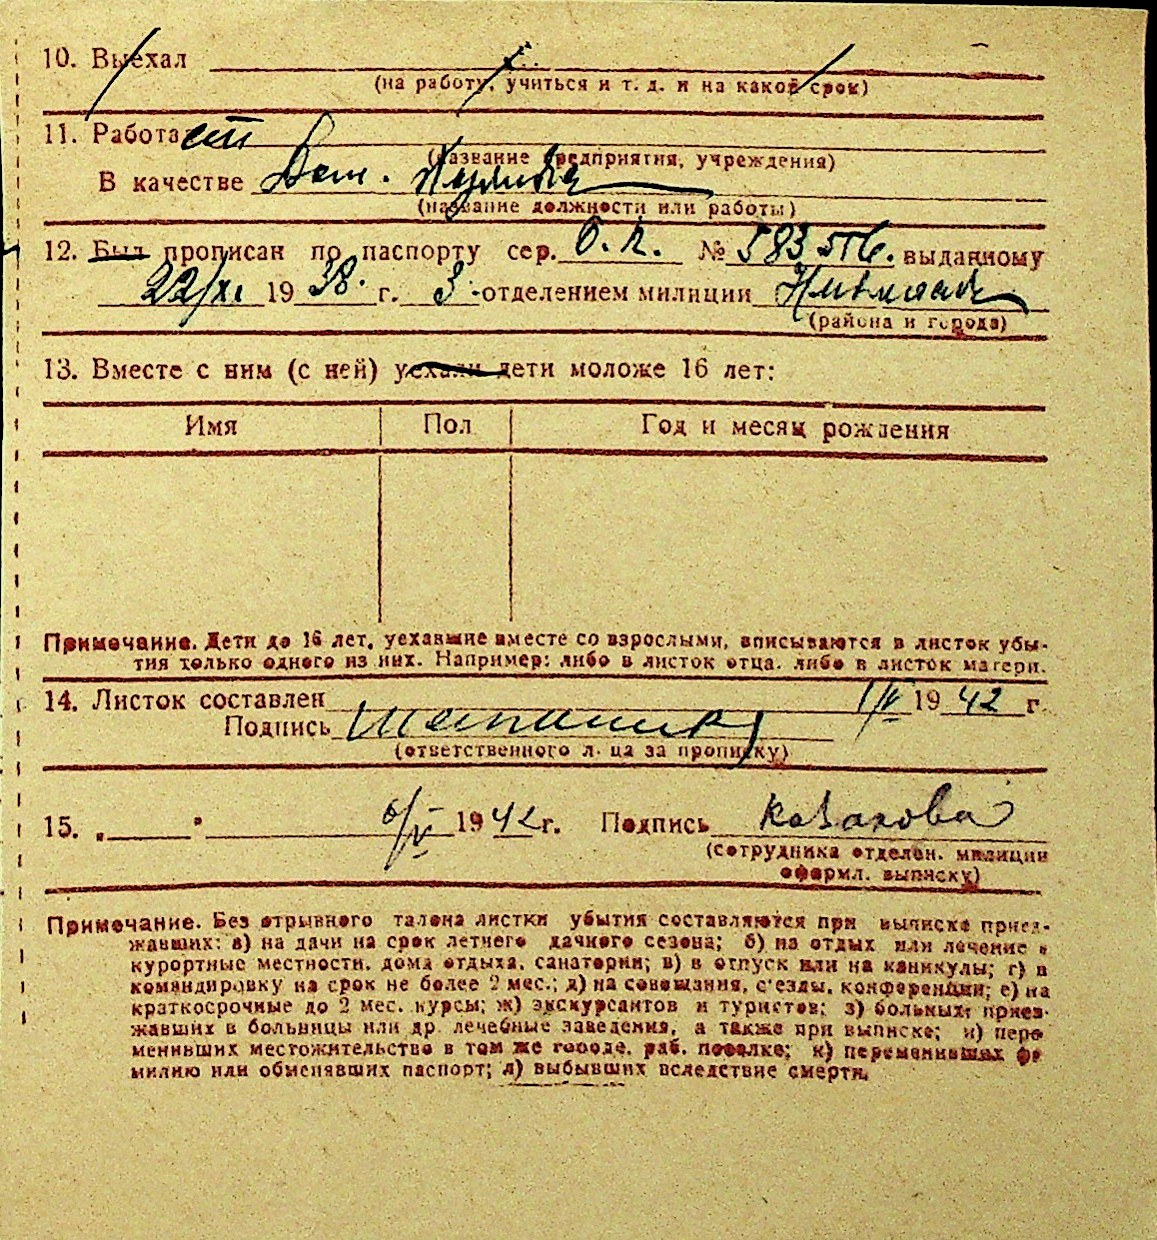 10. Выехал
(на работу, учиться и т. д. и на какой срок)
11. Работает
(название предприятия, учреждения)
В качестве
(название должности или работы)
12. Был прописан по паспорту сер. № 583516. выданному
22/XI 1938. г. 3-отделением милиции
(района и города)
13. Вместе с ним (с ней) уехали дети моложе 16 лет:
Имя Пол Год и месяц рождения
Примечание. Дети до 16 лет, уехавшие вместе со взрослыми, вписываются в листок убы-
тия только одного из них. Например: либо в листок отца, либо в листок матери.
14. Листок составлен 1/V 1942 г.
Подпись
(ответственного лица за прописку)
15. „ " 6/V 1942г. Подпись Казакова
(сотрудника отделен. милиции
оформл. выписку)
Примечание. Без отрывного талона листки убытия составляются при выписке приез-
жавших: а) на дачи на срок летнего дачного сезона; б) на отдых или лечение в
курортные местности, дома отдыха, санатории; в) в отпуск или на каникулы; г) в
командировку на срок не более 2 мес.; д) на совещания, с'езды, конференции; е) на
краткосрочные до 2 мес. курсы; ж) экскурсантов и туристов; з) больных, приез-
жавших в больницы или др. лечебные заведения, а также при выписке; и) пере
менивших местожительство в том же городе, раб. поселке; к) переменивших фа
милию или обменявших паспорт; л) выбывших вследствие смерти.